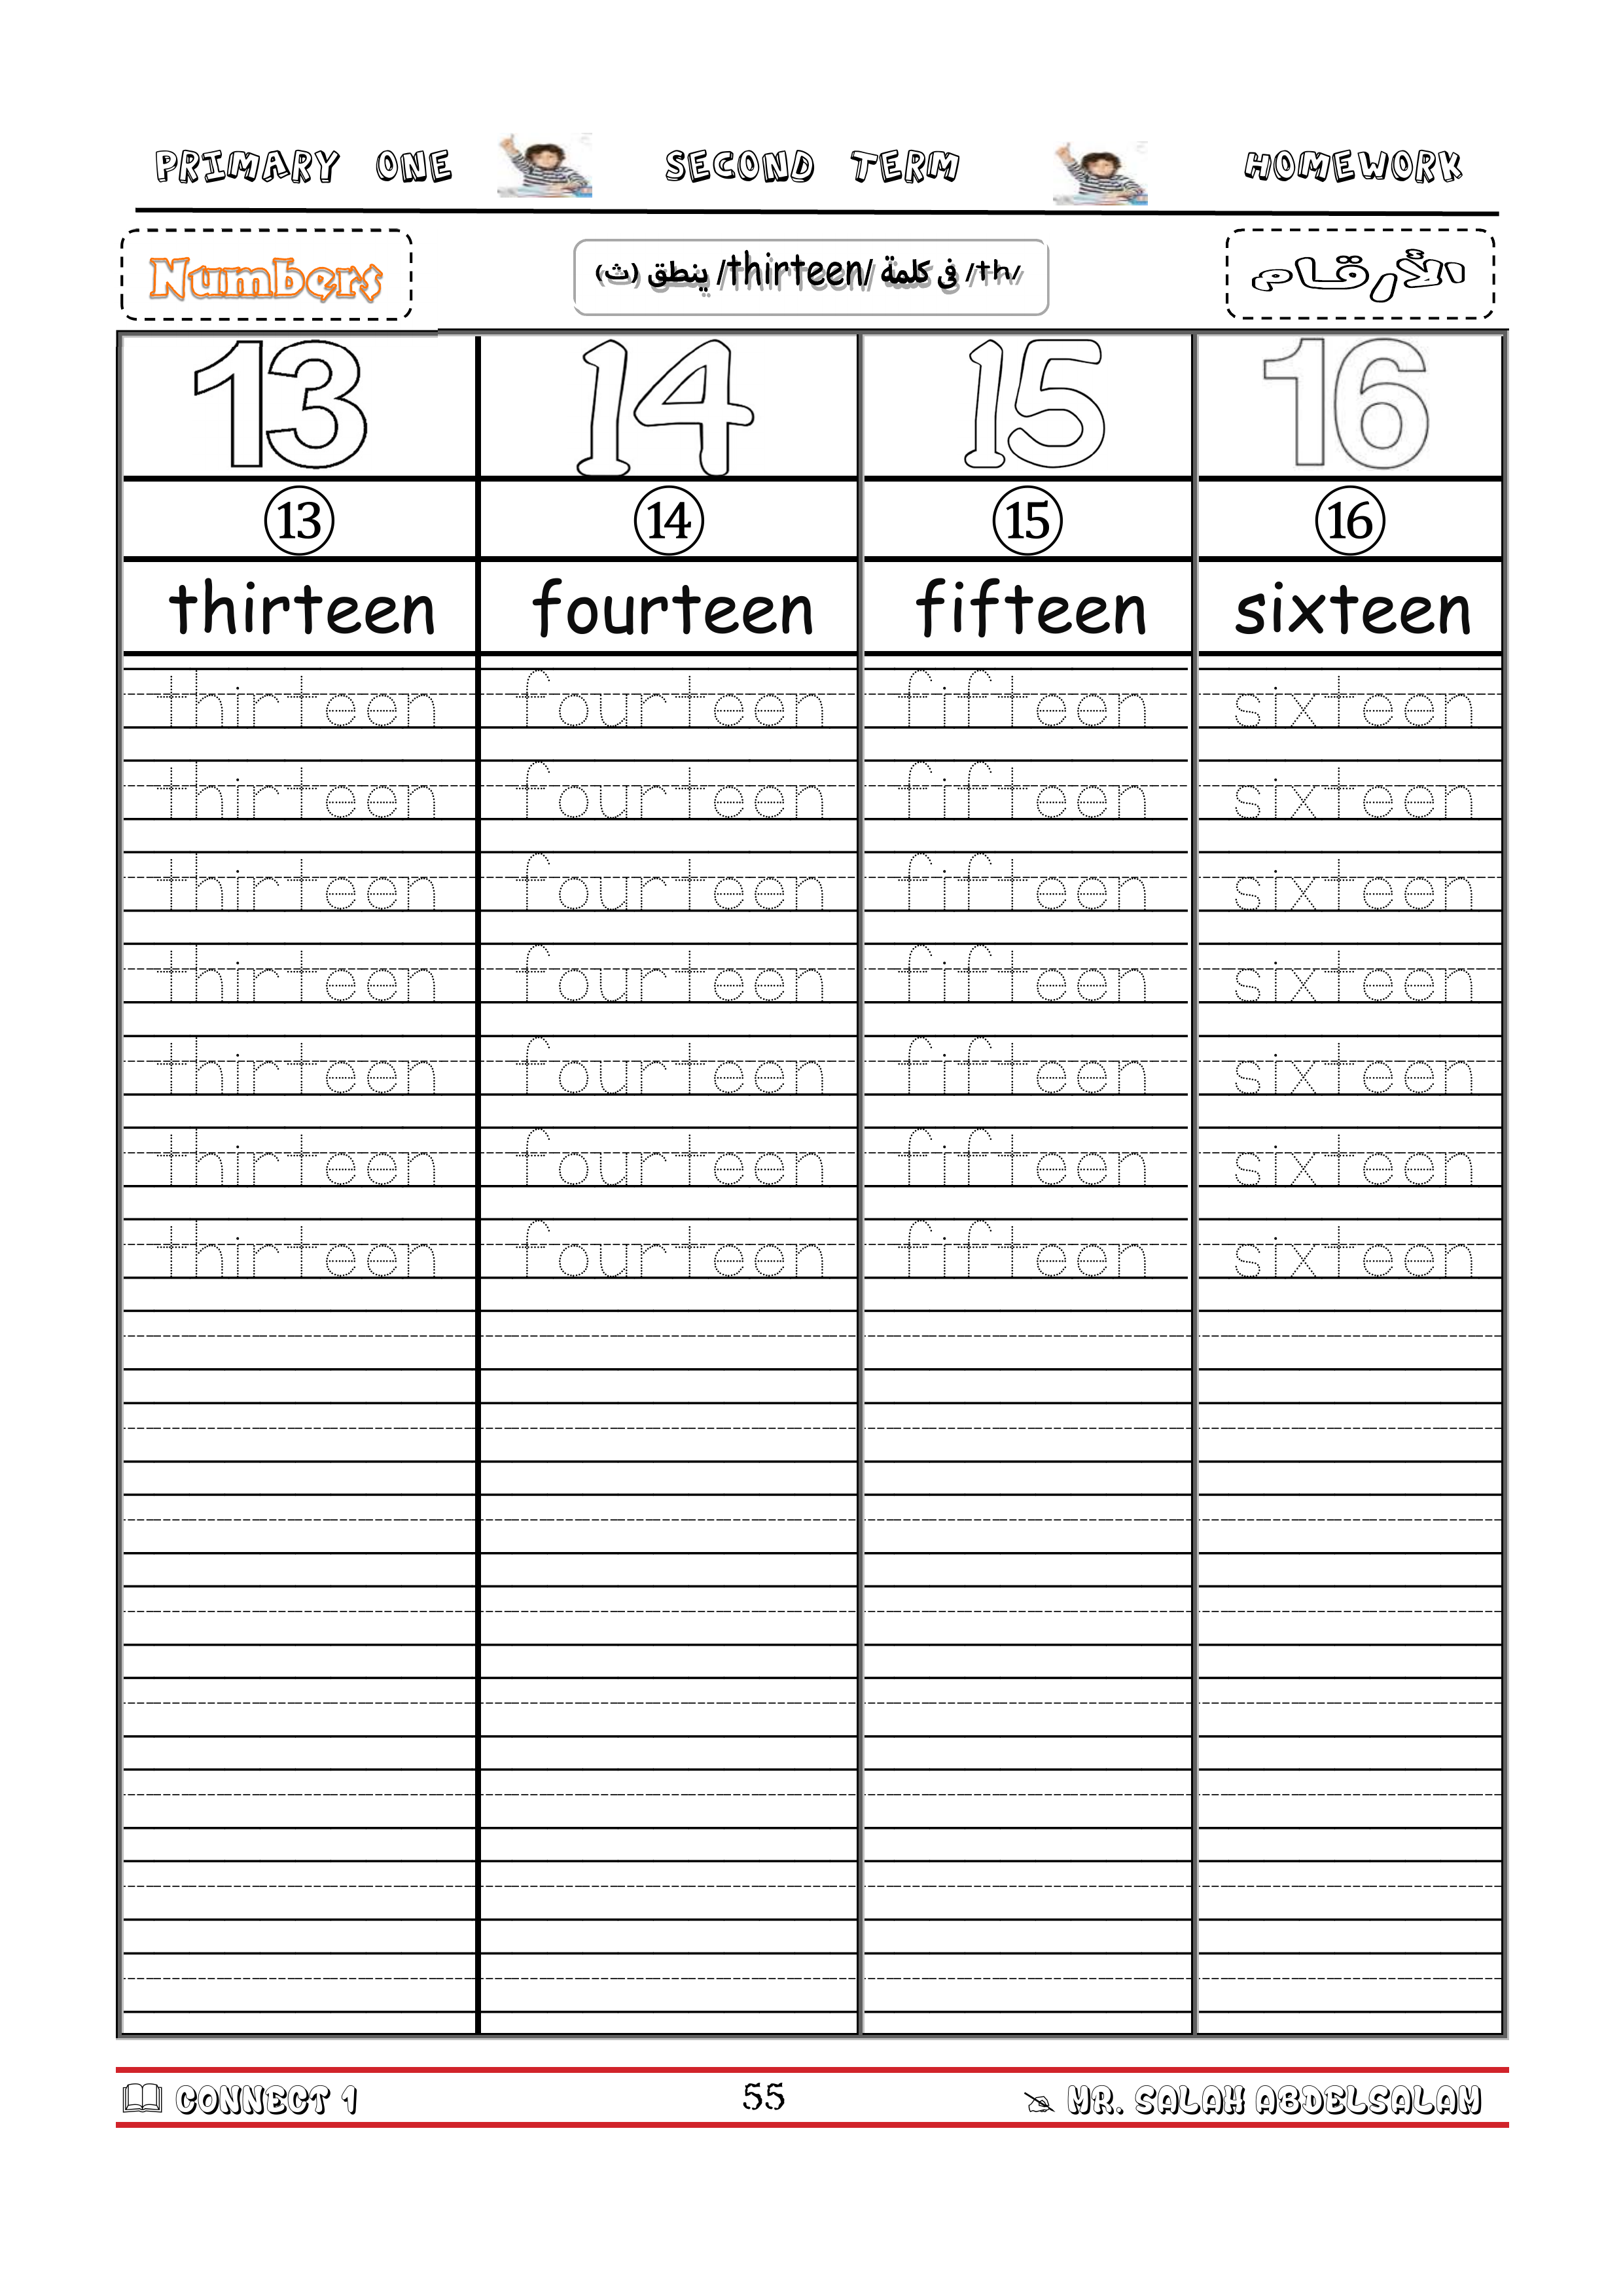 PRIMARY ONE SECOND TERM HOMEWORK
Numbers
/th/ فى كلمة /thirteen/ ينطق (ث)
الأرقام
13 14 15 16
13 14 15 16
thirteen fourteen fifteen sixteen
thirteen fourteen fifteen sixteen
thirteen fourteen fifteen sixteen
thirteen fourteen fifteen sixteen
thirteen fourteen fifteen sixteen
thirteen fourteen fifteen sixteen
thirteen fourteen fifteen sixteen
thirteen fourteen fifteen sixteen
CONNECT 1 55 MR. SALAH ABDELSALAM